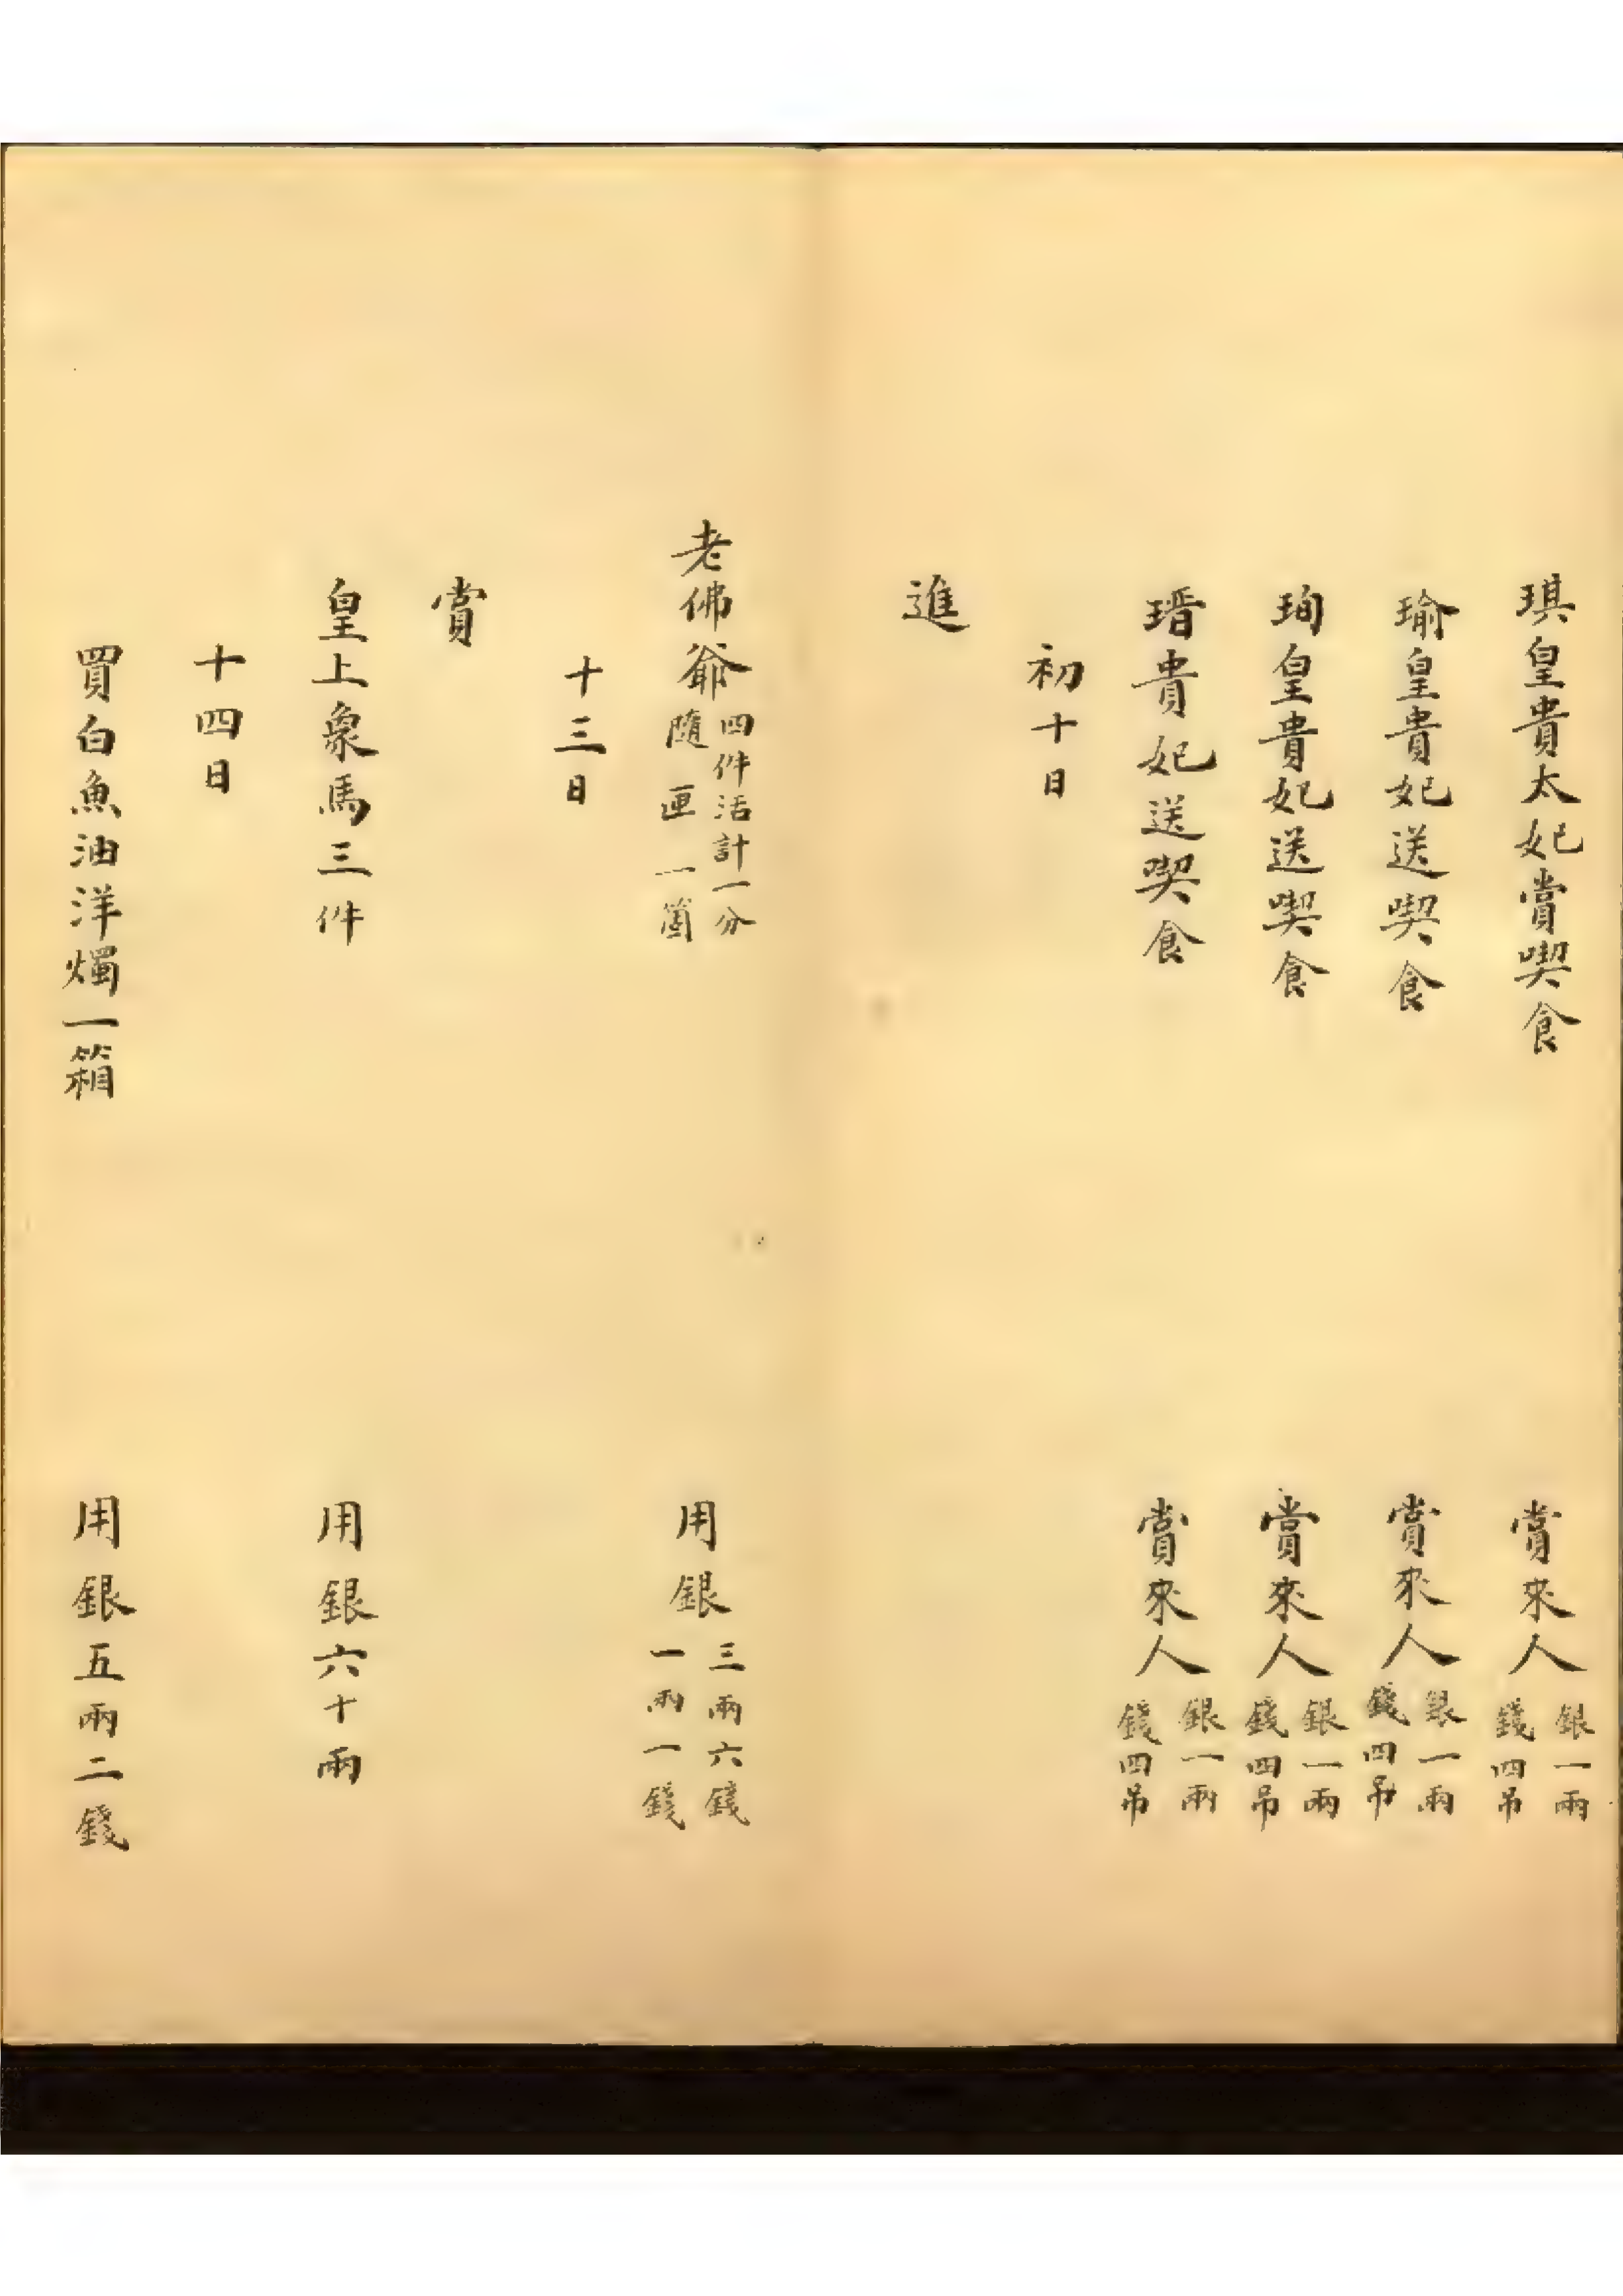 琪皇貴太妃賞喫食　賞來人銀一兩錢四吊
瑜皇貴妃送喫食　賞來人銀一兩錢四吊
珣皇貴妃送喫食　賞來人銀一兩錢四吊
瑨貴妃送喫食　賞來人銀一兩錢四吊
初十日
進
老佛爺四件活計一分隨匣一箇　用銀三兩六錢一兩一錢
十三日
賞
皇上象馬三件　用銀六十兩
十四日
買白魚油洋燭一箱　用銀五兩二錢